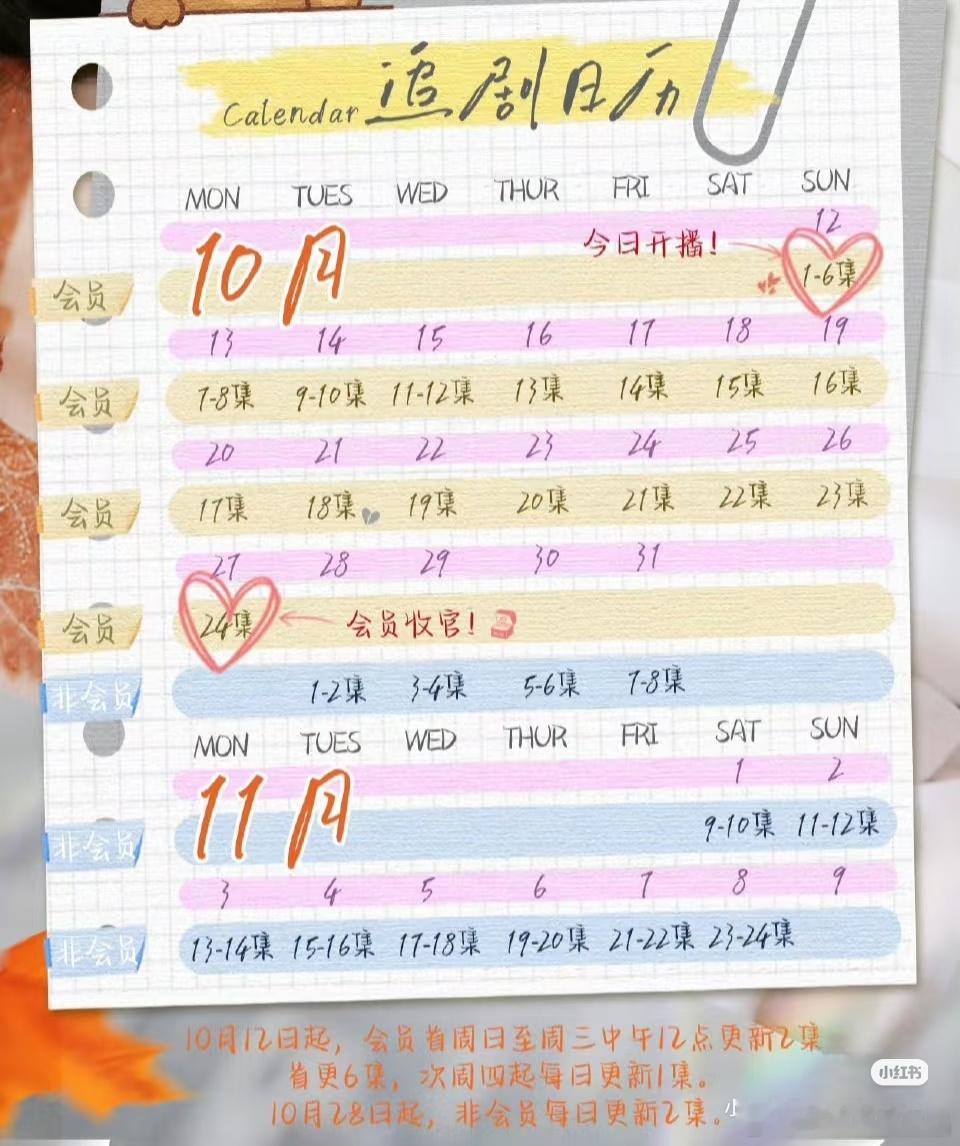 Calendar 追剧日历
MON TUES WED THUR FRI SAT SUN
10月 12
今日开播!
会员 1-6集
13 14 15 16 17 18 19
会员 7-8集 9-10集 11-12集 13集 14集 15集 16集
20 21 22 23 24 25 26
会员 17集 18集 19集 20集 21集 22集 23集
27 28 29 30 31
会员 24集 会员收官!
非会员 1-2集 3-4集 5-6集 7-8集
MON TUES WED THUR FRI SAT SUN
11月 1 2
非会员 9-10集 11-12集
3 4 5 6 7 8 9
非会员 13-14集 15-16集 17-18集 19-20集 21-22集 23-24集
10月12日起，会员首周日至周三中午12点更新2集
首更6集，次周四起每日更新1集。
10月28日起，非会员每日更新2集。
小红书